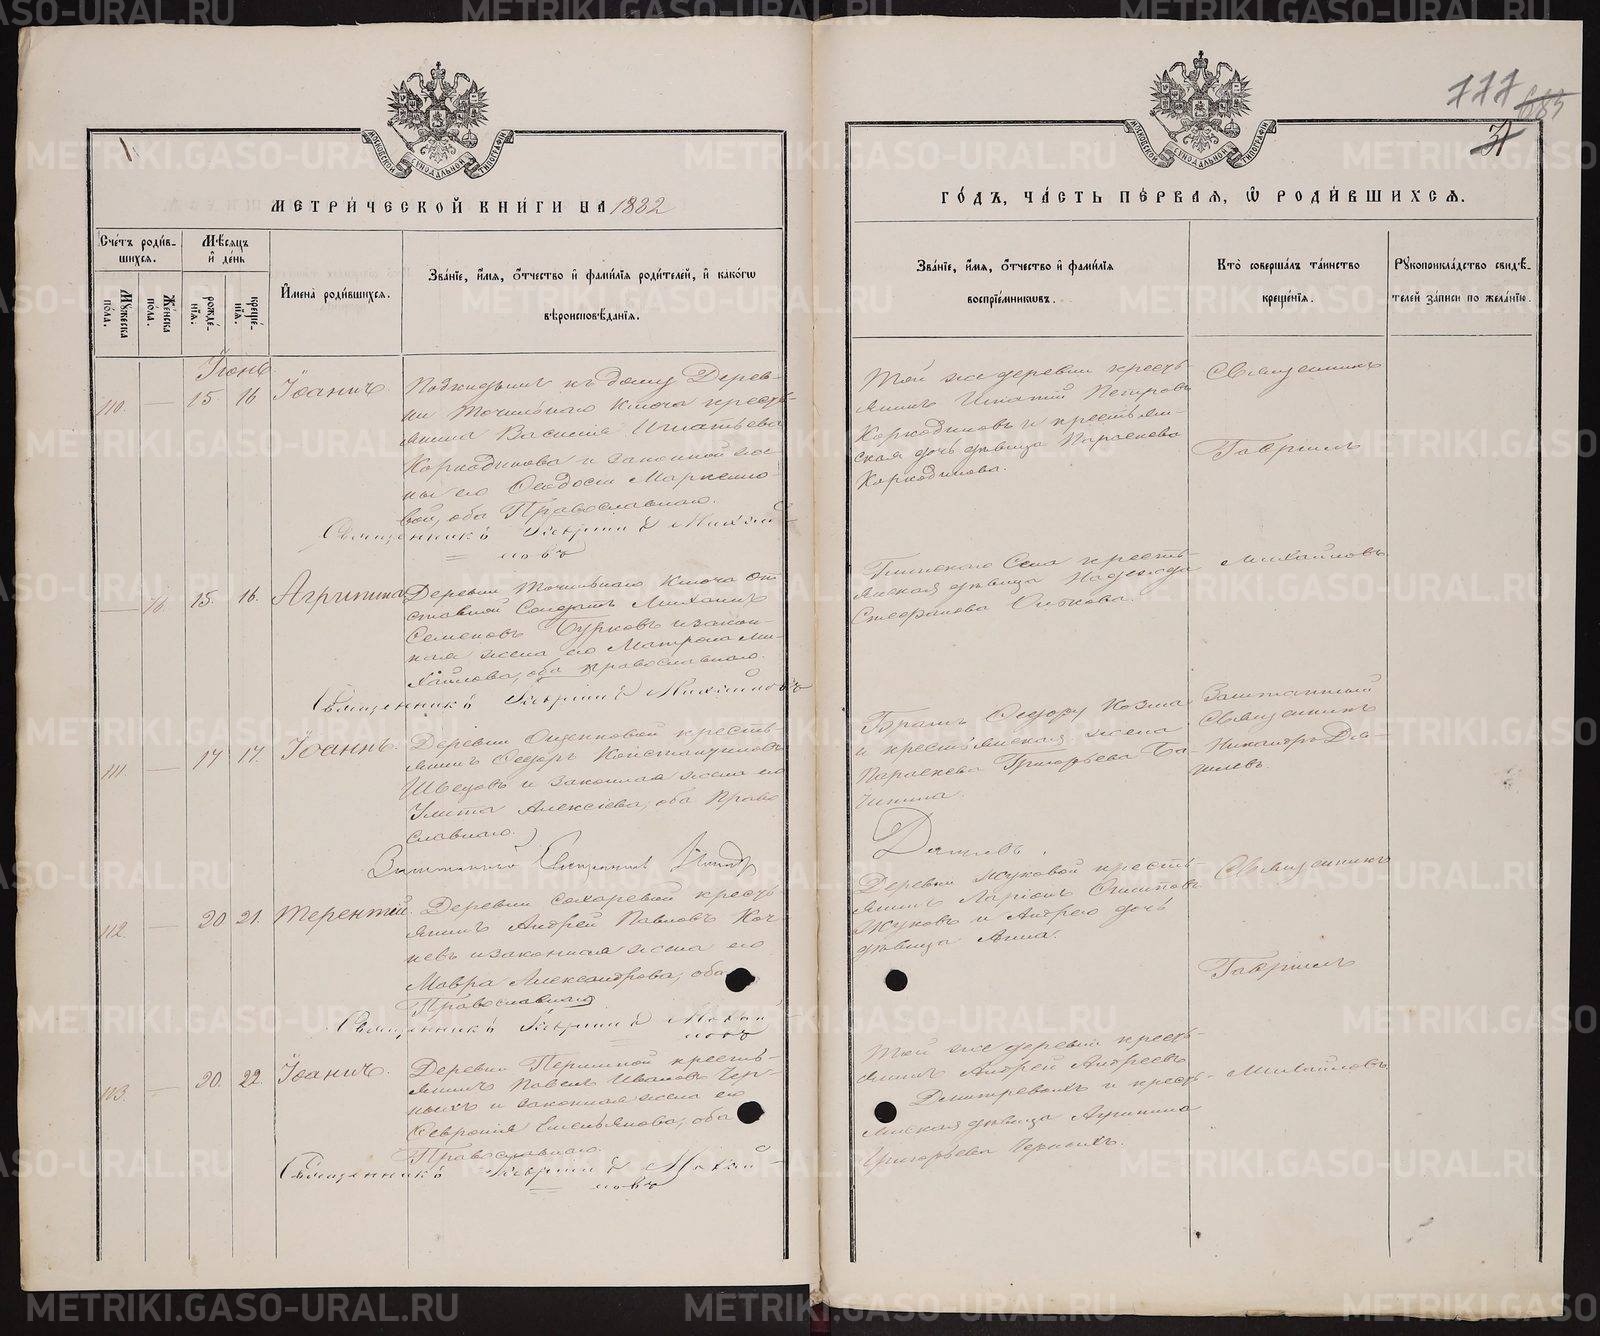 МЕТРИ́ЧЕСКОЙ КНИ́ГИ НА 1882
Сче́тъ роди́в-
шихся.
Му́жеска по́ла.
Же́нска по́ла.
Мѣ́сяцъ и҆ де́нь
рожде́-нїѧ.
креще́-нїѧ.
И҆мена̀ роди́вшихся.
Зва́нїе, и҆́мѧ, ѻ҆́тчество и҆ фами́лїѧ роди́телей, и҆ како́гѡ
вѣроисповѣ́данїѧ.
Іюнь
110. — 15. 16 Іоаннъ.
Подкидышъ къ дому Дерев-
ни Точильнаго Ключа кресть-
янина Василія Игнатьева
Коркодинова и законной же-
ны его Ѳеодосіи
вой, оба Православнаго.
Священникъ Гавріилъ Михай-
ловъ
— 76. 15. 16. Агрипина
Деревни Точильнаго Ключа от-
ставной Солдатъ Михаилъ
Семеновъ Бурковъ и закон-
ная жена его Матрона Ми-
хайлова, оба православнаго.
Священникъ Гавріилъ Михайловъ
111. — 17 17. Іоаннъ.
Деревни Ощепковой кресть-
янинъ Ѳедоръ Константиновъ
Швецовъ и законная жена его
Улита Алексіева, оба Право
славнаго.
Заштатный Священникъ
112. — 20 21. Терентій.
Деревни Сохаревой кресть
янинъ Андрей Павловъ Коч-
невъ и законная жена его
Мавра Александрова, оба
Православнаго
Священникъ Гавріилъ Михай
ловъ
113. — 20. 22. Іоаннъ.
Деревни Першиной кресть-
янинъ Павелъ Ивановъ Чер-
ныхъ и законная жена его
Февронія Емельянова, оба
Православнаго.
Священникъ Гавріилъ Михай-
ловъ
777 683
31
ГО́ДЪ, ЧА́СТЬ ПЕ́РВАЯ, Ѡ҆ РОДИ́ВШИХСЯ.
Зва́нїе, и҆́мѧ, ѻ҆́тчество и҆ фами́лїѧ
воспрїе́мникѡвъ.
Кто̀ соверша́лъ та́инство
креще́нїѧ.
Рꙋкоприкла́дство свидѣ́-
телей за́писи по жела́нїю.
Той же деревни кресть-
янинъ Игнатій Петровъ
Коркодиновъ и крестьян-
ская дочь дѣвица Параскева
Коркодинова.
Священникъ
Гавріилъ
Глинскаго Села кресть-
янская дѣвица Надежда
Стефанова
Михайловъ.
Братъ Ѳедору Козма
и крестьянская жена
Параскева Григорьева Ба-
Заштатный
Священникъ
Никандръ Дяг-
илевъ.
Дягилевъ.
Деревни Жуковой кресть-
янинъ Ларіонъ
Жуковъ и Андрею дочь
дѣвица Анна.
Священникъ
Гавріилъ
Той же деревни кресть-
янинъ Андрей Андреевъ
и кресть-
янская дѣвица Агрипина
Григорьева Черныхъ.
Михайловъ.
METRIKI.GASO-URAL.RU